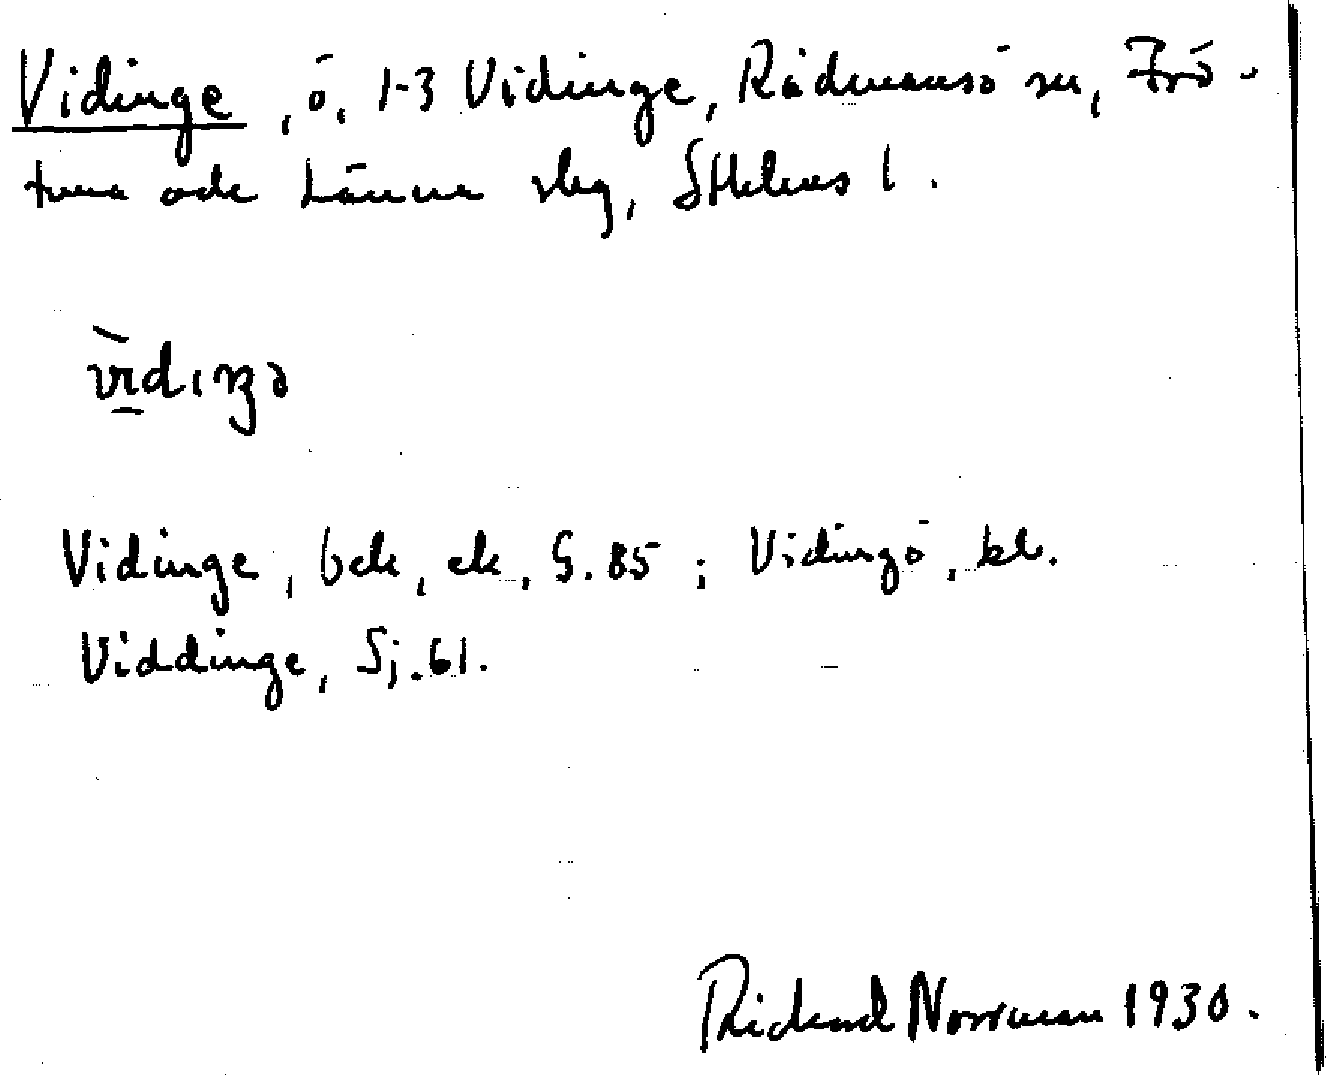 Vidinge, ö, 1-3 Vidinge, Rådmansö sn, Frö-
tuna och Länna slg, Sthlms l.
vìdıŋə
Vidinge, bek, ek, G. 85; Vidingö, kb.
Viddinge, Sj. 61.
Rickard Norrman 1930.